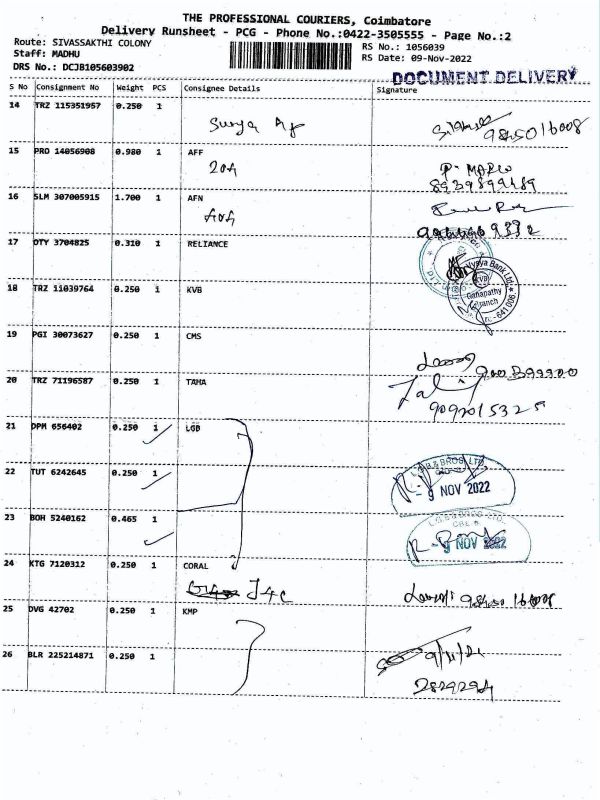 THE PROFESSIONAL COURIERS, Coimbatore
Delivery Runsheet - PCG - Phone No.:0422-3505555 - Page No.:2
Route: SIVASSAKTHI COLONY
Staff: MADHU
DRS No.: DCJB105603902
RS No.: 1056039
RS Date: 09-Nov-2022
DOCUMENT DELIVERY
S No Consignment No Weight PCS Consignee Details Signature
14 TRZ 115351957 0.250 1
Surya
9845016008
15 PRO 14056908 0.980 1 AFF
204
P. 
8939899489
16 SLM 307005915 1.700 1 AFN
404
17 DTY 3704825 0.310 1 RELIANCE
18 TRZ 11039764 0.250 1 KVB
Vysya Bank Ltd.
Ganapathy
Branch
641 006
19 PGI 30073627 0.250 1 CMS
20 TRZ 71196587 0.250 1 TAHA
9092015325
21 DPM 656402 0.250 1 LGB
22 TUT 6242645 0.250 1
L.G.B.& BROS. LTD
- 9 NOV 2022
23 BOH 5240162 0.465 1
L.G.B & BROS. LTD.,
CBE-6.
- 9 NOV 2022
24 KTG 7120312 0.250 1 CORAL
J4C
25 DVG 42702 KMP 0.250 1
26 BLR 225214871 0.250 1
2829294